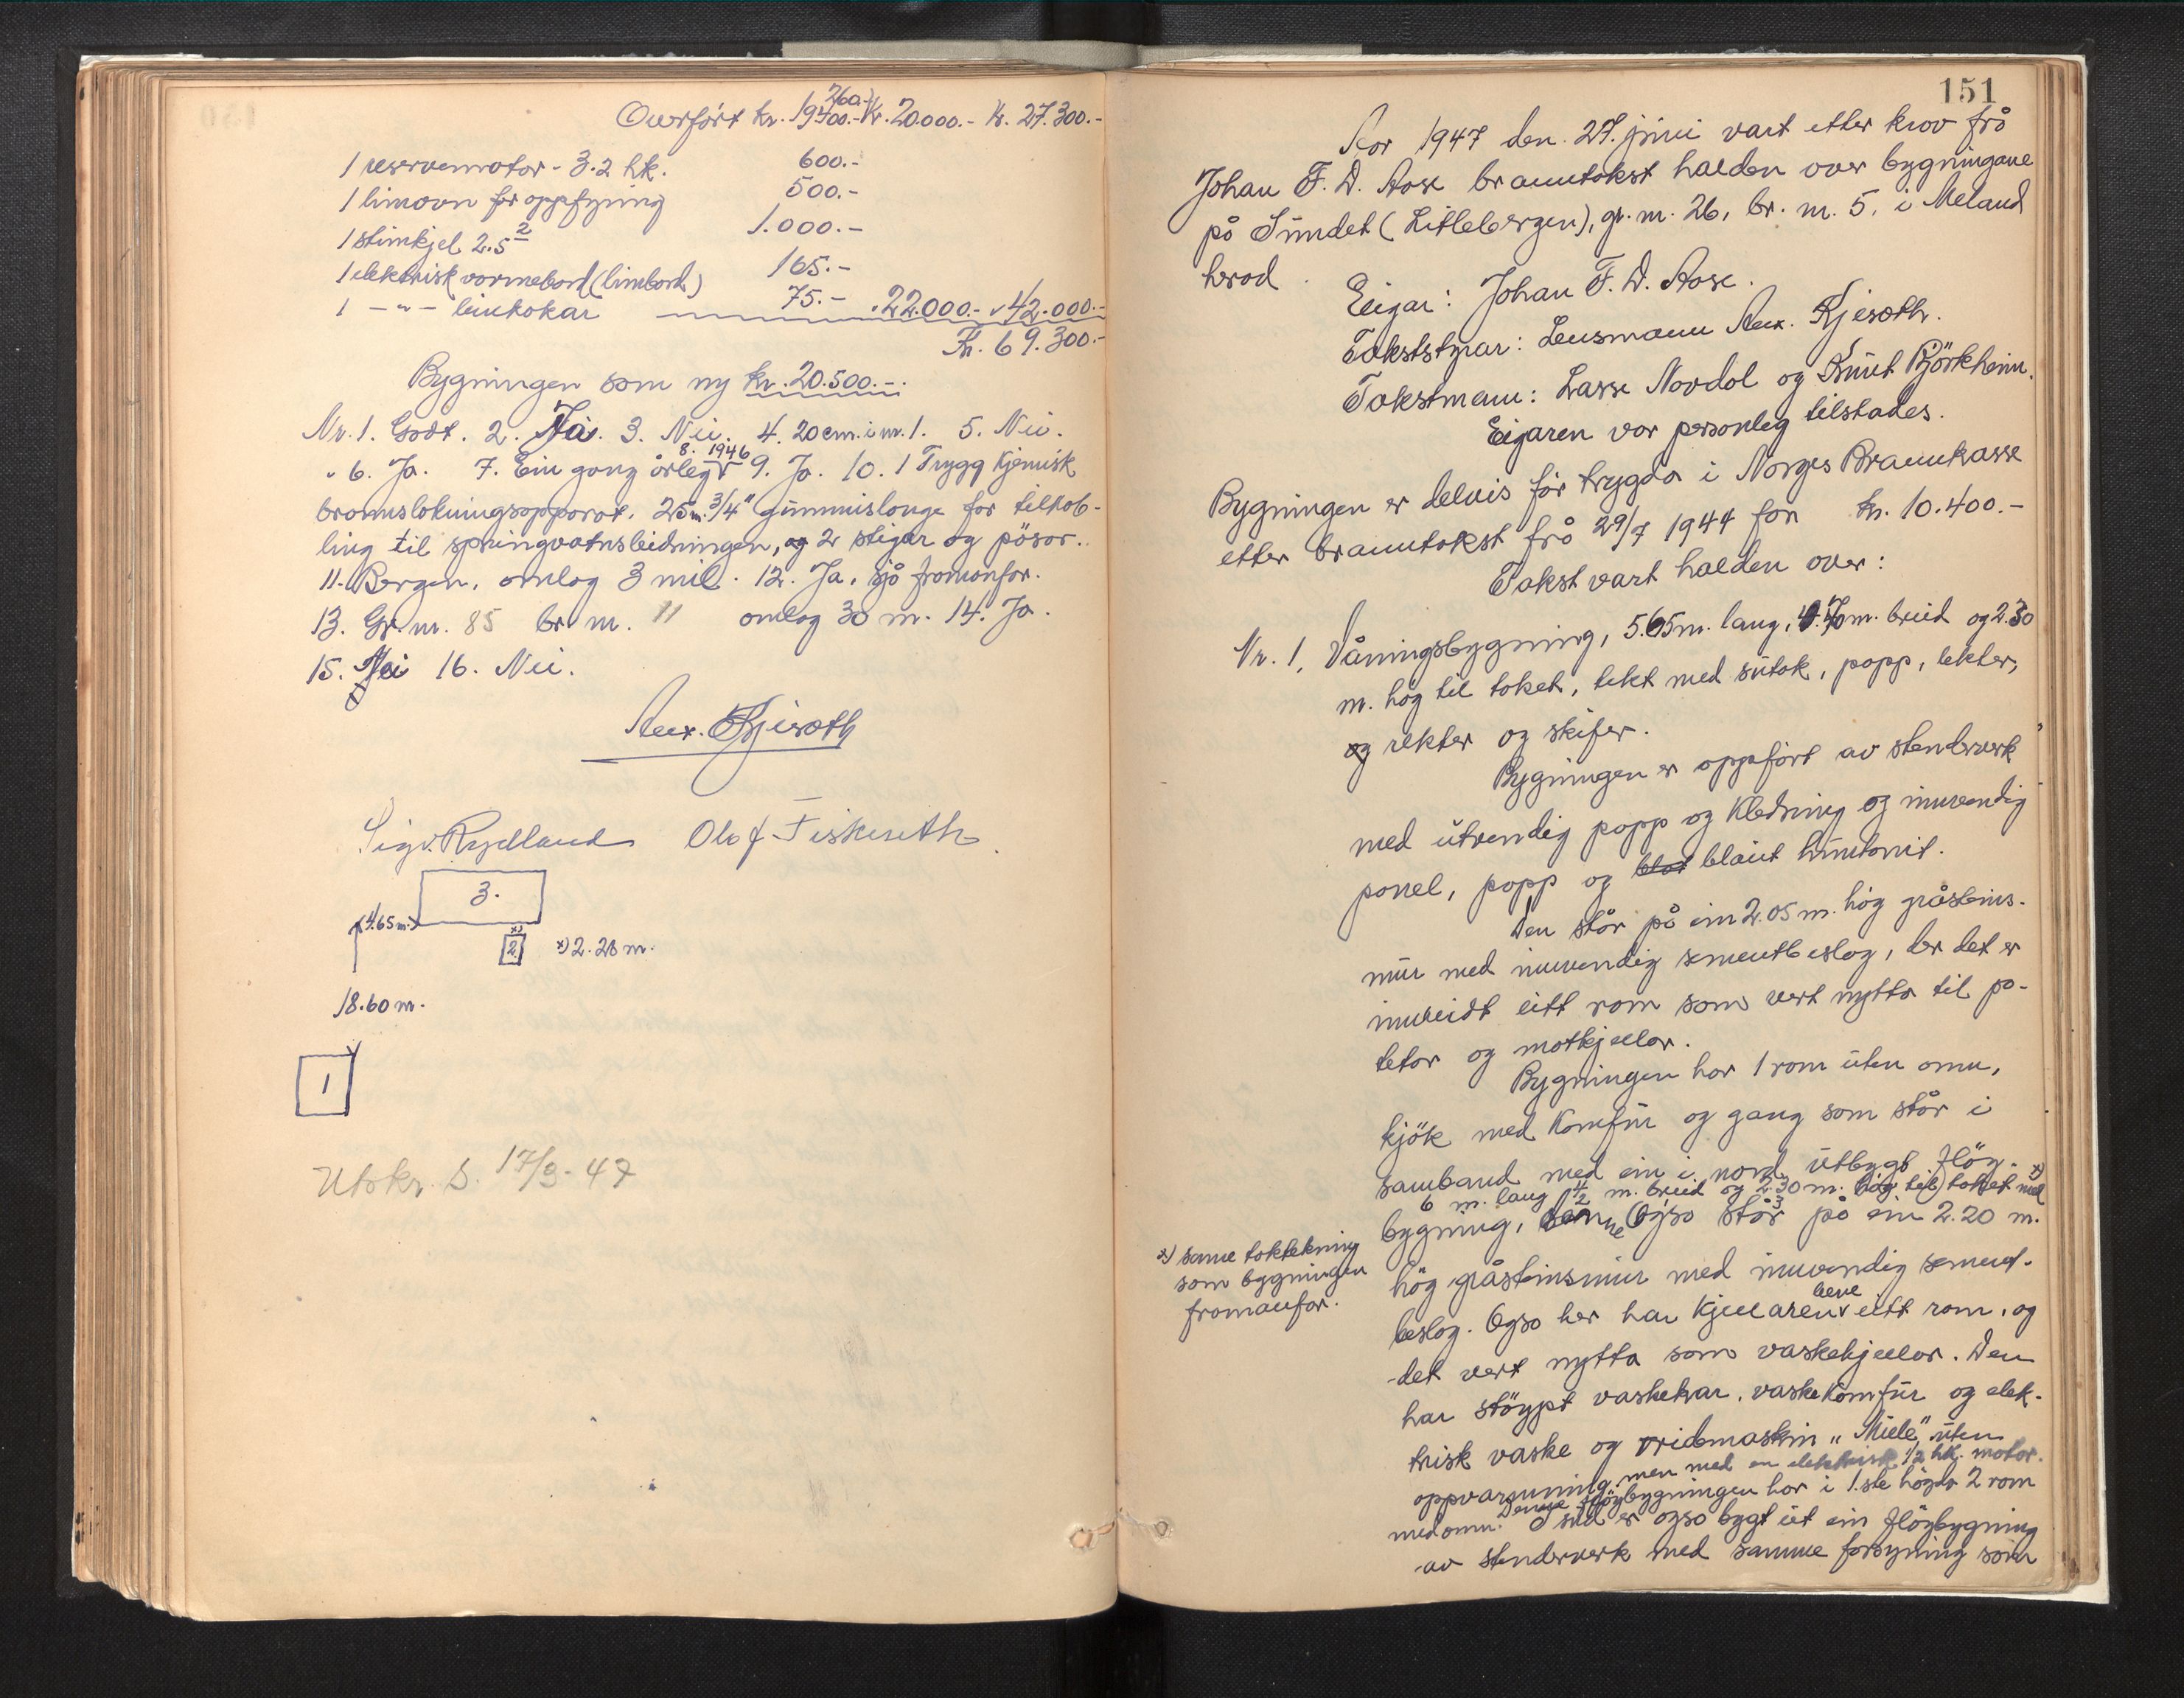 Overført kr. 19400.- Kr. 20.000.- Kr. 27.300.-
260.-
1 reservemotor - 3.2 hk. 600.-
1 limovn for oppfyring 500.-
1 stimkjel 2.5 2 1.000.-
1 elektrisk varmebord (limbord) 165.-
1 -"- limkokar 75.- " 22.000.- " 42.000.-
Kr. 69.300.-
Bygningen som ny kr. 20.500.-.
Nr. 1. Godt. 2. Ja. 3. Nei. 4. 20 cm. i nr. 1. 5. Nei.
" 6. Ja. 7. Ein gang årleg 8. 1946 9. Ja. 10. 1 Trygg kjemisk
brannslokningsapparat. 25 m. 3/4" gummislange for tilkob-
ling til springvatnsleidningen, og 2 stigar og pøsar.
11. Bergen, omlag 3 mil. 12. Ja, sjø framanfor.
13. Gr. nr. 85 br. nr. 11 omlag 30 m. 14. Ja.
15. Nei 16. Nei.
Anx. Kjeseth
Sigv. Rydland Olaf Fiskeseth
3.
4.65 m.
x)
2 x) 2.28 m.
18.60 m.
1
Utskr. S. 17/3-47
151
Aar 1947 den 27. juni vart etter krav frå
Johan F. D. Aase branntakst halden over bygningane
på Sundet (Litlebergen), gr. nr. 26, br. nr. 5, i Meland
herad.
Eigar: Johan F. D. Aase.
Takststyrar: Lensmann Anx. Kjeseth.
Takstmenn: Lasse Nordal og Knut Björkheim.
Eigaren var personleg tilstades.
Bygningen er delvis før trygda i Norges Brannkasse
etter branntakst frå 29/7 1944 for kr. 10.400.-
Takst vart halden over:
Nr. 1. Våningsbygning, 5.65 m. lang, 4.70 m. breid og 2.30
m. høg til taket, tekt med sutak, papp, lekter,
og rekter og skifer.
Bygningen er oppført av stenderverk
med utvendig papp og kledning og innvendig
panel, papp og blaut huntonit.
Den står på ein 2.05 m. høg gråsteins-
mur med innvendig sementbeslag, der det er
innreidt eitt rom som vert nytta til po-
tetor og matkjellar.
Bygningen har 1 rom uten omn,
kjøk med komfur og gang som står i
samband med ein i nord utbygt fløy-
6 m. lang 4 1/2 m. breid og 2.30 m. høg til taket med x)
bygning, denne også står på ein 2.20 m.
x) same taktekning
som bygningen
framanfor.
høg gråsteinsmur med innvendig sement-
beslag. Også her har kjellaren berre eitt rom, og
det vert nytta som vaskekjellar. Den
har støypt vaskekar, vaskekomfur og elek-
trisk vaske og vridemaskin "Miele" uten
oppvarming, men med en elektrisk 1/2 hk. motor.
Denne fløybygningen har i 1.ste høgda 2 rom
med omn. I sud er også bygt ut ein fløybygning
av stenderverk med samme forsyning som